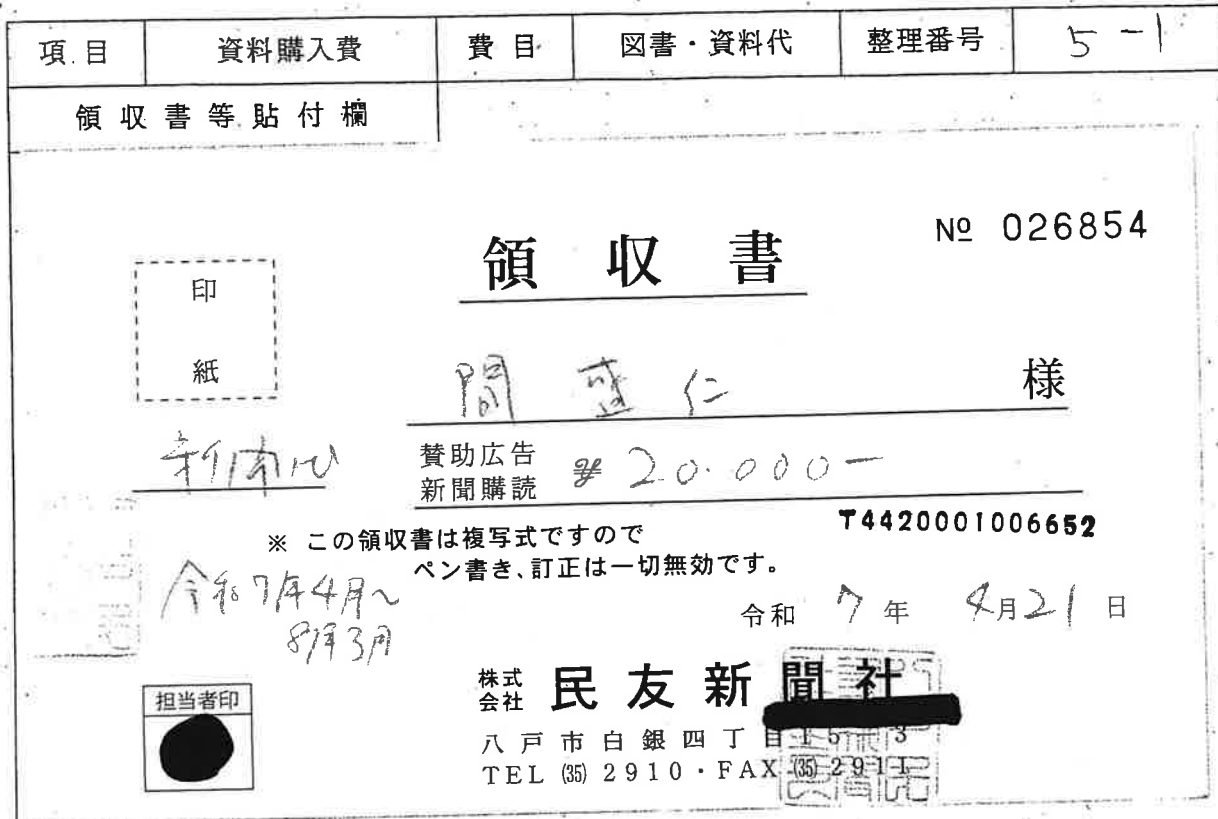 項目 資料購入費 費目 図書・資料代 整理番号 5-1
領収書等貼付欄
領収書 № 026854
印
紙
間 盛仁 様
賛助広告
新聞購読 ¥20.000-
T4420001006652
※ この領収書は複写式ですので
ペン書き、訂正は一切無効です。
令和7年4月~
8年3月
令和 7年 4月21日
株式会社 民友新聞社
担当者印
八戸市白銀四丁目15-3
TEL(35)2910・FAX(35)2911